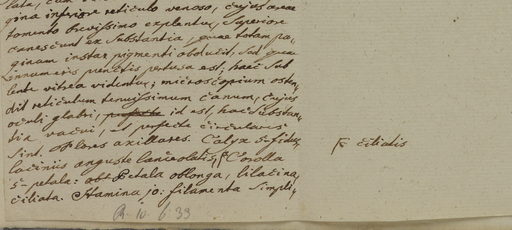 gina inferiore reticulo venoso, cujus areae
tomento brevissimo explentur, superiore
canescunt ex substantia, quae totam pa-
ginam instar pigmenti obducit, sed quae
innumeris punctis pertusa est, haec sub
lente vitrea videntur; microscopium osten-
dit reticulum tenuissimum canum, cujus
oculi glabri, perfecte id est, hac substan-
tia vacui, et perfecte circulares
sint. Flores axillares. Calyx 5-fidus,
laciniis anguste lanceolatis, F Corolla
5-petala: Petala oblonga, lilacina,
ciliata. Stamina 10: filamenta simpli-
F ciliatis
R. 10. 6. 33